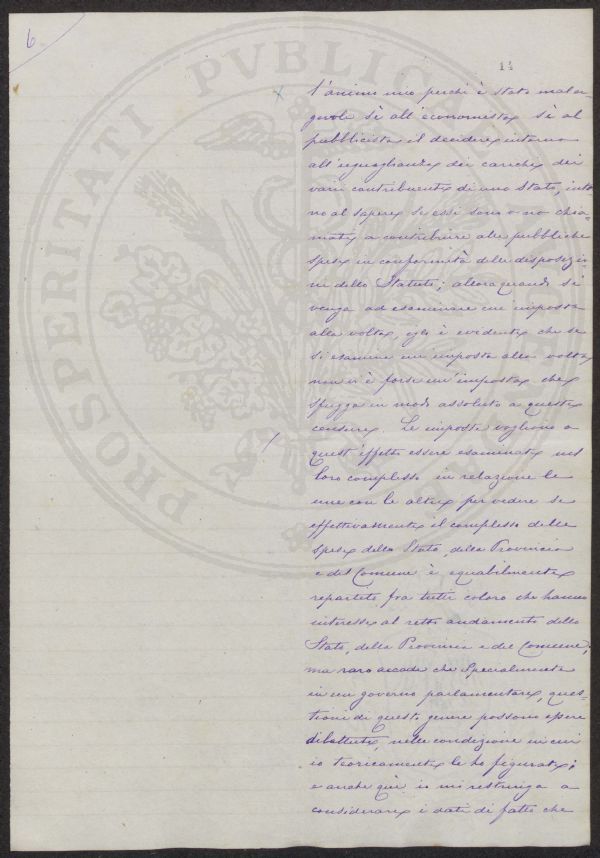 6
14
PROSPERITATI PVBLICAE
l'animo mio perchè è stato malagevole sì all'economista sì al
pubblicista il decidere intorno
all'eguaglianza dei carichi dei
varii contribuenti di uno Stato, intorno
al sapere se essi sono o no chiamati
a contribuire alle pubbliche
spese in conformità delle disposizioni
dello Statuto; allora quando si
venga ad esaminare un'imposta
alla volta, egli è evidente che se
si esamina un'imposta alla volta
non vi è forse un'imposta che
sfugga in modo assoluto a questa
censura. Le imposte vogliono a
quest'effetto essere esaminate nel
loro complesso in relazione le
une con le altre per vedere se
effettivamente il complesso delle
spese dello Stato, della Provincia
e del Comune è equabilmente
repartito fra tutti coloro che hanno
interesse al retto andamento dello
Stato, della Provincia e del Comune;
ma raro accade che specialmente
in un governo parlamentare, questioni
di questo genere possono essere
dibattute, nelle condizioni in cui
io teoricamente le ho figurate;
e anche qui io mi restringo a
considerare i dati di fatto che